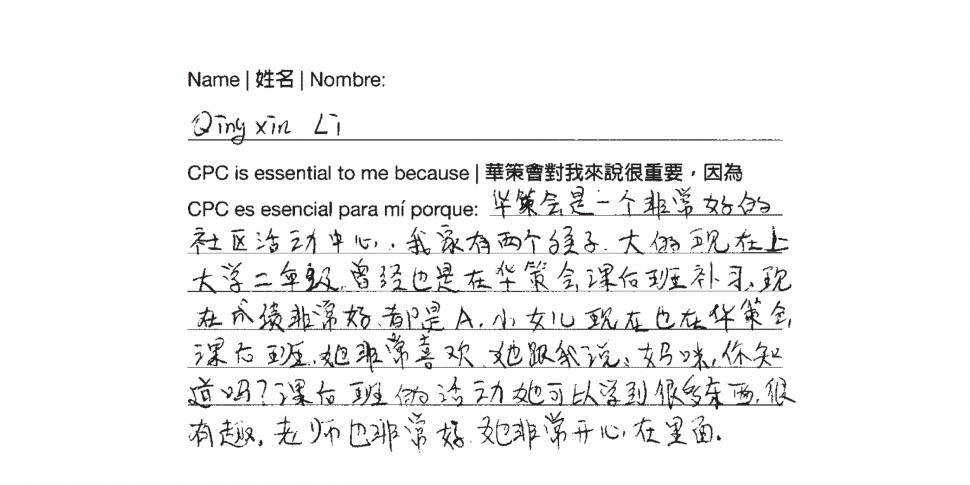 Name | 姓名 | Nombre:
Qing xin Li
CPC is essential to me because | 華策會對我來說很重要，因為
CPC es esencial para mí porque: 华策会是一个非常好的
社区活动中心，我家有两个孩子. 大的现在上
大学二年级, 曾经也是在华策会课后班补习, 现
在成绩非常好, 都是A. 小女儿现在也在华策会
课后班. 她非常喜欢. 她跟我说: 妈咪, 你知
道吗? 课后班的活动她可以学到很多东西, 很
有趣. 老师也非常好. 她非常开心, 在里面.